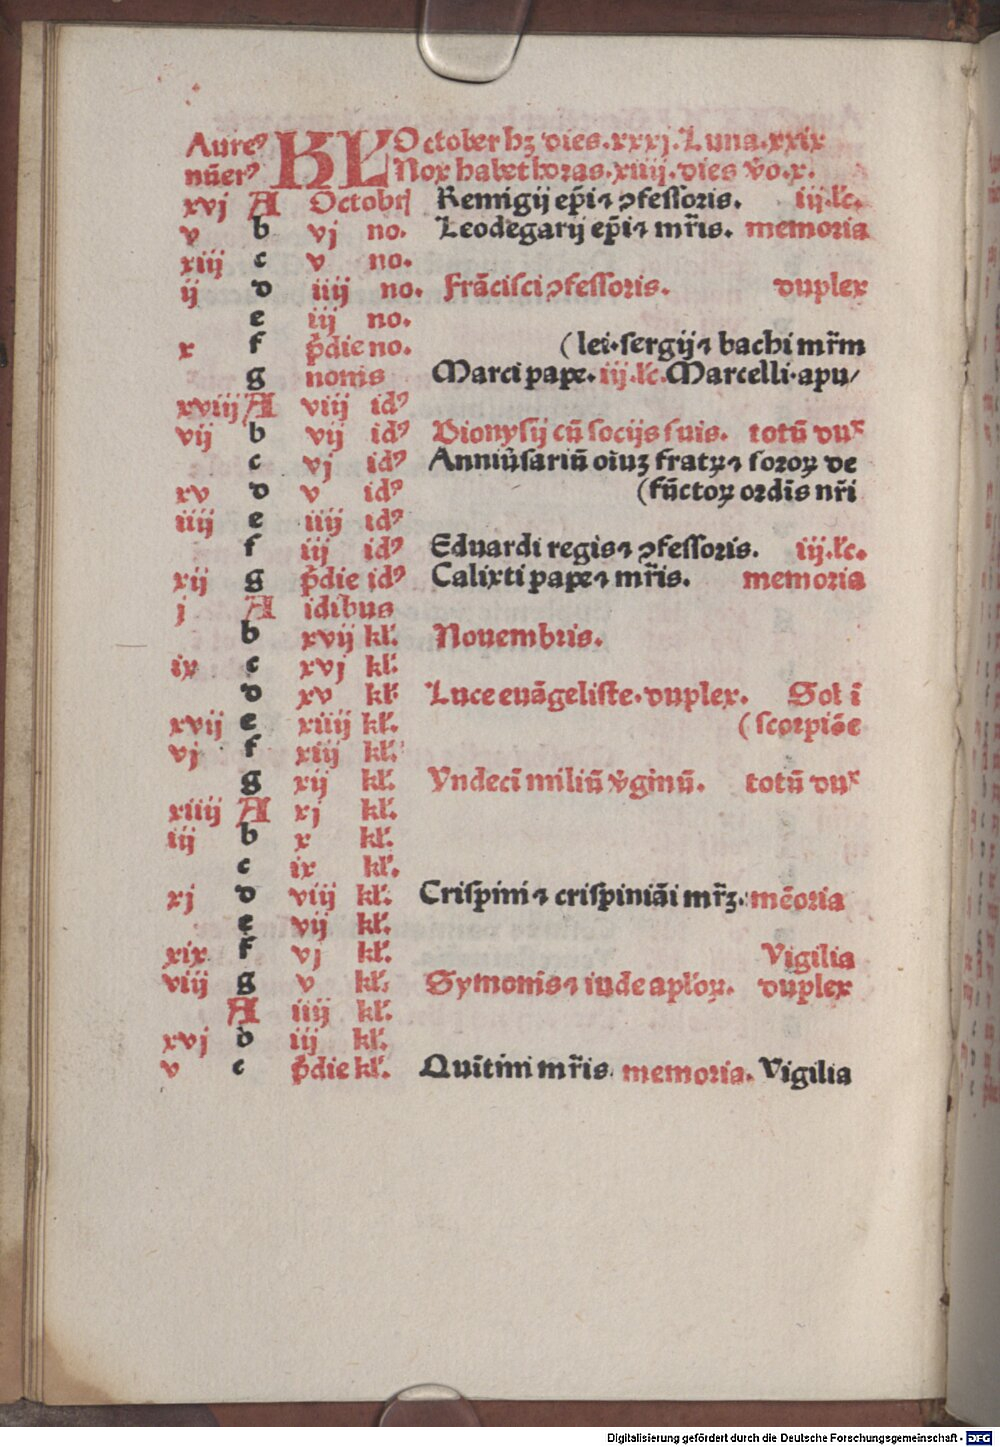 Aureꝰ KL October hꝫ dies.xxxj.Luna.xxix
nūerꝰ Nox habet horas.xiiij.dies v̊o.x.
xvj A Octobrꝭ Remigij ep̄i ⁊ ꝯfessoris. iij.lc̄.
v b vj no. Leodegarij ep̄i ⁊ mr̄is. memoria
xiij c v no.
ij d iiij no. Frācisci ꝯfessoris. duplex
e iij no.
x f p̄die no. (lei.sergij ⁊ bachi mr̄m
g nonis Marci pape.iij.lc̄.Marcelli.apu/
xviij A viij idꝰ
vij b vij idꝰ Dionysij cū socijs suis. totū du˟
c vj idꝰ Anniūsariū oīuꝫ fratꝝ ⁊ soroꝝ de
xv d v idꝰ (fūctoꝝ ordīs nr̄i
iiij e iiij idꝰ
f iij idꝰ Eduardi regis ⁊ ꝯfessoris. iij.lc̄.
xij g p̄die idꝰ Calixti pape ⁊ mr̄is. memoria
j A idibus
b xvij kl̓. Nouembris.
ix c xvj kl̓.
d xv kl̓ Luce euāgeliste.duplex. Sol ī
xvij e xiiij kl̓. (scorpiōe
vj f xiij kl̓.
g xij kl̓. Vndecī miliū v̓ginū. totū du˟
xiiij A xj kl̓.
iij b x kl̓.
c ix kl̓.
xj d viij kl̓. Crispini ⁊ crispiniāi mr̄ꝫ. mēoria
e vij kl̓.
xix f vj kl̓. Vigilia
viij g v kl̓. Symonis ⁊ iude apl̓oꝝ. duplex
A iiij kl̓.
xvj b iij kl̓.
v c p̄die kl̓. Quītini mr̄is. memoria. Vigilia
Digitalisierung gefördert durch die Deutsche Forschungsgemeinschaft - DFG